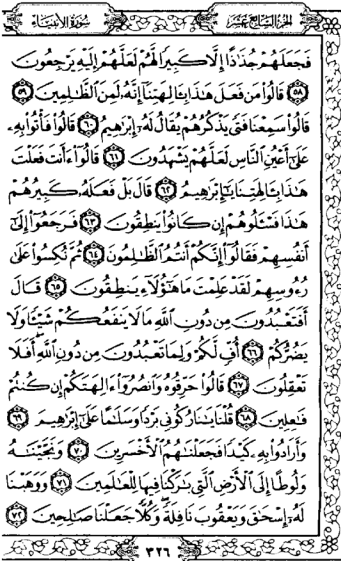 الجزء السابع عشر سورة الأنبياء
فَجَعَلَهُمْ جُذَٰذًا إِلَّا كَبِيرًا لَّهُمْ لَعَلَّهُمْ إِلَيْهِ يَرْجِعُونَ
٥٨ قَالُوا۟ مَن فَعَلَ هَٰذَا بِـَٔالِهَتِنَآ إِنَّهُۥ لَمِنَ ٱلظَّٰلِمِينَ ٥٩
قَالُوا۟ سَمِعْنَا فَتًى يَذْكُرُهُمْ يُقَالُ لَهُۥٓ إِبْرَٰهِيمُ ٦٠ قَالُوا۟ فَأْتُوا۟ بِهِۦ
عَلَىٰٓ أَعْيُنِ ٱلنَّاسِ لَعَلَّهُمْ يَشْهَدُونَ ٦١ قَالُوٓا۟ ءَأَنتَ فَعَلْتَ
هَٰذَا بِـَٔالِهَتِنَا يَٰٓإِبْرَٰهِيمُ ٦٢ قَالَ بَلْ فَعَلَهُۥ كَبِيرُهُمْ
هَٰذَا فَسْـَٔلُوهُمْ إِن كَانُوا۟ يَنطِقُونَ ٦٣ فَرَجَعُوٓا۟ إِلَىٰٓ
أَنفُسِهِمْ فَقَالُوٓا۟ إِنَّكُمْ أَنتُمُ ٱلظَّٰلِمُونَ ٦٤ ثُمَّ نُكِسُوا۟ عَلَىٰ
رُءُوسِهِمْ لَقَدْ عَلِمْتَ مَا هَٰٓؤُلَآءِ يَنطِقُونَ ٦٥ قَالَ
أَفَتَعْبُدُونَ مِن دُونِ ٱللَّهِ مَا لَا يَنفَعُكُمْ شَيْـًٔا وَلَا
يَضُرُّكُمْ ٦٦ أُفٍّ لَّكُمْ وَلِمَا تَعْبُدُونَ مِن دُونِ ٱللَّهِ أَفَلَا
تَعْقِلُونَ ٦٧ قَالُوا۟ حَرِّقُوهُ وَٱنصُرُوٓا۟ ءَالِهَتَكُمْ إِن كُنتُمْ
فَٰعِلِينَ ٦٨ قُلْنَا يَٰنَارُ كُونِى بَرْدًا وَسَلَٰمًا عَلَىٰٓ إِبْرَٰهِيمَ ٦٩
وَأَرَادُوا۟ بِهِۦ كَيْدًا فَجَعَلْنَٰهُمُ ٱلْأَخْسَرِينَ ٧٠ وَنَجَّيْنَٰهُ
وَلُوطًا إِلَى ٱلْأَرْضِ ٱلَّتِى بَٰرَكْنَا فِيهَا لِلْعَٰلَمِينَ ٧١ وَوَهَبْنَا
لَهُۥٓ إِسْحَٰقَ وَيَعْقُوبَ نَافِلَةً وَكُلًّا جَعَلْنَا صَٰلِحِينَ ٧٢
٣٢٦